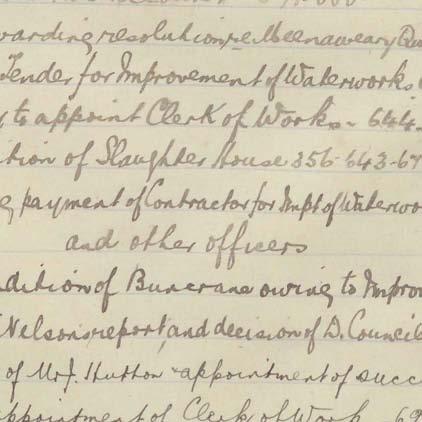 warding resolution re Meenaweary Qu
Tender for Improvement of Waterworks
to appoint Clerk of Works - 644-
ition of Slaughter House 356-643-67
payment of Contractor for Impt of Waterwo
and other officers
ndition of Buncrana owing to Improv
Nelsons report, and decision of D. Council
of Mr J. Hutton + appointment of succ
appointment of Clerk of Work 69